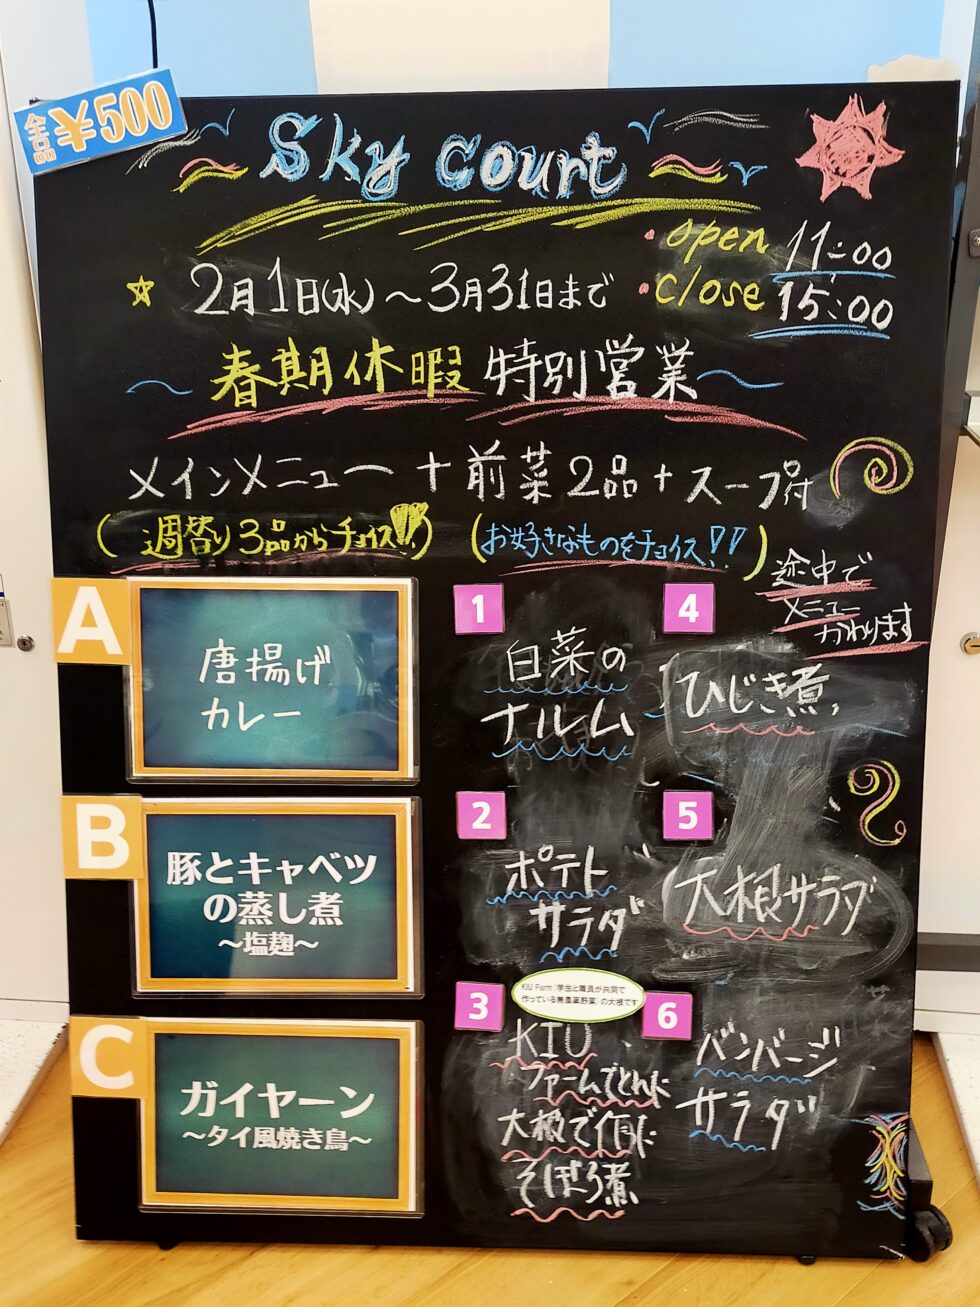 全品¥500
Sky court
open 11:00
close 15:00
2月1日(水)～3月31日まで
春期休暇 特別営業
メインメニュー + 前菜2品 + スープ付
(週替り3品からチョイス!!)
(お好きなものをチョイス!!)
途中で
メニュー
かわります
A
唐揚げ
カレー
B
豚とキャベツ
の蒸し煮
～塩麹～
C
ガイヤーン
～タイ風焼き鳥～
1
白菜の
ナムル
2
ポテト
サラダ
3
KIU Farm(学生と職員が共同で
作っている無農薬野菜)の大根です
KIU
ファームでとれた
大根で作った
そぼろ煮
4
ひじき煮
5
大根サラダ
6
バンバージ
サラダ